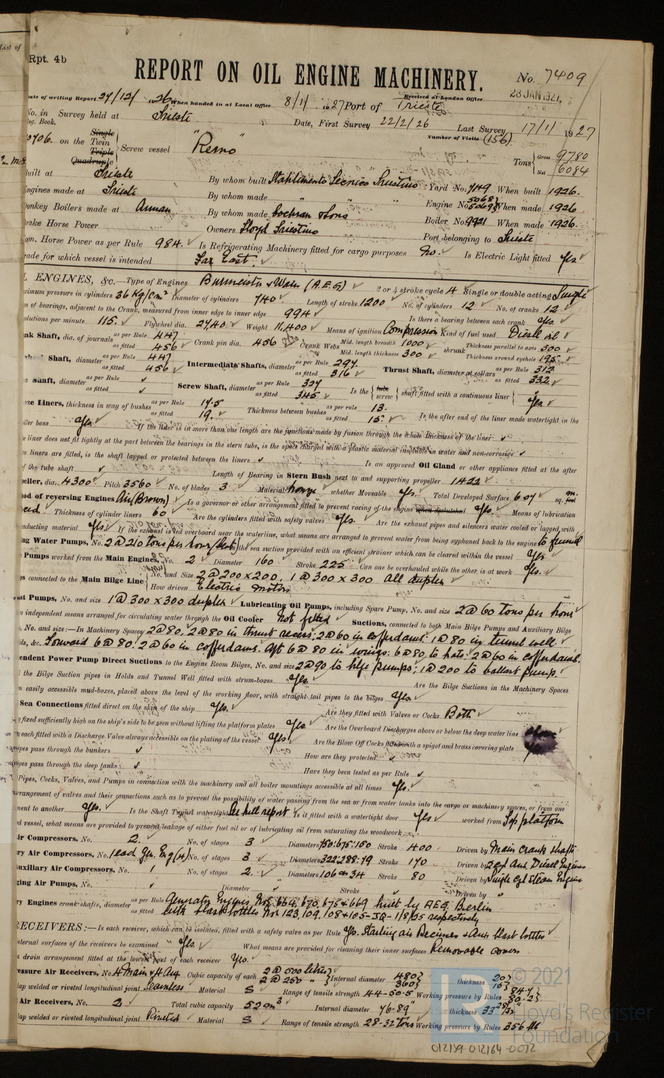 Rpt. 4b
REPORT ON OIL ENGINE MACHINERY.
No. 7409
28 JAN 1927
Received at London Office
of writing Report 27/12/1926 When handed in at Local Office 8/1/1927 Port of Trieste
No. in Survey held at Trieste Date, First Survey 22/2/26 Last Survey 17/1/1927
Reg. Book. Number of Visits (156)
on the Single Twin Triple Quadruple Screw vessel "Remo" Tons Gross 9780 Net 6084
built at Trieste By whom built Stabilimento Tecnico Triestino Yard No. 749 When built 1926.
Engines made at Trieste By whom made " " " Engine No. When made 1926
Donkey Boilers made at Annan By whom made Cochran & Sons Boiler No. 9921 When made 1926.
Brake Horse Power Owners Lloyd Triestino Port belonging to Trieste
Nom. Horse Power as per Rule 984. Is Refrigerating Machinery fitted for cargo purposes No. Is Electric Light fitted Yes
Trade for which vessel is intended Far East.
OIL ENGINES, &c.—Type of Engines Burmeister & Wain (A.E.G.) 2 or 4 stroke cycle 4 Single or double acting Single
Maximum pressure in cylinders 36 Kg/cm² Diameter of cylinders 740 Length of stroke 1200 No. of cylinders 12 No. of cranks 12
of bearings, adjacent to the Crank, measured from inner edge to inner edge 994 Is there a bearing between each crank Yes
Revolutions per minute 115. Flywheel dia. 2740 Weight 11,400 Means of ignition Compression Kind of fuel used Diesel oil
Crank Shaft, dia. of journals as per Rule 447 as fitted 456 Crank pin dia. 456 Crank Webs Mid. length breadth 1000 Mid. length thickness 300 shrunk Thickness parallel to axis 300 Thickness around eyehole 195
Shaft, diameter as per Rule 447 as fitted 456 Intermediate Shafts, diameter as per Rule 297 as fitted 316 Thrust Shaft, diameter at collars as per Rule 312 as fitted 332
Shaft, diameter as per Rule as fitted Screw Shaft, diameter as per Rule 327 as fitted 345 Is the tube screw shaft fitted with a continuous liner Yes
Bronze Liners, thickness in way of bushes as per Rule 17.5 as fitted 19. Thickness between bushes as per Rule 13. as fitted 15. Is the after end of the liner made watertight in the
propeller boss Yes If the liner is in more than one length are the junctions made by fusion through the whole thickness of the liner
liner does not fit tightly at the part between the bearings in the stern tube, is the space charged with a plastic material insoluble in water and non-corrosive
liners are fitted, is the shaft lapped or protected between the liners Is an approved Oil Gland or other appliance fitted at the after
of the tube shaft Length of Bearing in Stern Bush next to and supporting propeller 1422
Propeller, dia. 4300 Pitch 3560 No. of blades 3 Material bronze whether Moveable Yes. Total Developed Surface 6.07 sq.
Method of reversing Engines Air (Brown) Is a governor or other arrangement fitted to prevent racing of the engine Yes. Means of lubrication
Thickness of cylinder liners 60 Are the cylinders fitted with safety valves Yes. Are the exhaust pipes and silencers water cooled or lagged with
conducting material Yes If the exhaust is led overboard near the waterline, what means are arranged to prevent water from being syphoned back to the engine to funnel
Cooling Water Pumps, No. 2 @ 210 tons per hour Is the sea suction provided with an efficient strainer which can be cleared within the vessel Yes
Pumps worked from the Main Engines, No. 2 Diameter 160 Stroke 225 Can one be overhauled while the other is at work Yes.
Pumps connected to the Main Bilge Line No. and Size 2 @ 200 x 200, 1 @ 300 x 300 All duplex
How driven Electric motors
Ballast Pumps, No. and size 1 @ 300 x 300 duplex Lubricating Oil Pumps, including Spare Pump, No. and size 2 @ 60 tons per hour
independent means arranged for circulating water through the Oil Cooler Not fitted Suctions, connected to both Main Bilge Pumps and Auxiliary Bilge
No. and size:—In Machinery Spaces 2 @ 80; 2 @ 80 in thrust recess; 2 @ 60 in cofferdams; 1 @ 80 in tunnel well
&c. Forward 6 @ 80; 2 @ 60 in cofferdams. Aft 6 @ 80 in wings; 6 @ 80 to hats; 2 @ 60 in cofferdams.
Independent Power Pump Direct Suctions to the Engine Room Bilges, No. and size 2 @ 90 to bilge pumps; 1 @ 200 to ballast pump.
the Bilge Suction pipes in Holds and Tunnel Well fitted with strum-boxes Yes Are the Bilge Suctions in the Machinery Spaces
easily accessible mud-boxes, placed above the level of the working floor, with straight tail pipes to the bilges Yes
Sea Connections fitted direct on the skin of the ship Yes. Are they fitted with Valves or Cocks Both
fixed sufficiently high on the ship's side to be seen without lifting the platform plates Yes Are the Overboard Discharges above or below the deep water line
each fitted with a Discharge Valve always accessible on the plating of the vessel Yes Are the Blow Off Cocks fitted with a spigot and brass covering plate
pipes pass through the bunkers How are they protected
pipes pass through the deep tanks Have they been tested as per Rule
Pipes, Cocks, Valves, and Pumps in connection with the machinery and all boiler mountings accessible at all times Yes.
arrangement of valves and their connections such as to prevent the possibility of water passing from the sea or from water tanks into the cargo or machinery spaces, or from one
compartment to another Yes. Is the Shaft Tunnel watertight See hull report Is it fitted with a watertight door Yes worked from Top platform
vessel, what means are provided to prevent leakage of either fuel oil or of lubricating oil from saturating the woodwork
Air Compressors, No. 2. No. of stages 3 Diameters 750.675.160 Stroke 400 Driven by Main crank shafts
Auxiliary Air Compressors, No. 1 each Gen. Eng (4) No. of stages 3 Diameters 322.288.79 Stroke 170 Driven by Aux Diesel Engines
Auxiliary Air Compressors, No. 1 No. of stages 2. Diameters 106 & 34 Stroke 80 Driven by Single cyl steam Engine
Scavenging Air Pumps, No. Diameter Stroke Driven by
Auxiliary Engines crank shafts, diameter as per Rule as fitted Generator Engines, Nos 664, 670, 675 & 669 built by A.E.G. Berlin
with blast bottles Nos 123, 109, 108 & 105 respectively
AIR RECEIVERS:—Is each receiver, which can be isolated, fitted with a safety valve as per Rule Yes. Starting air Receivers & Aux. blast bottles
internal surfaces of the receivers be examined Yes What means are provided for cleaning their inner surfaces Removable covers
drain arrangement fitted at the lowest part of each receiver Yes.
High Pressure Air Receivers, No. 4 Main & 4 Aux. Cubic capacity of each 2 @ 500 litres 2 @ 250 " Internal diameter 480 360 thickness 20 15
lap welded or riveted longitudinal joint Seamless Material S Range of tensile strength 44-50.5 Working pressure by Rules
Starting Air Receivers, No. 2 Total cubic capacity 52 m³ Internal diameter thickness
lap welded or riveted longitudinal joint Riveted Material S Range of tensile strength 28-32 tons Working pressure by Rules 356 lb
© 2021
Lloyd's Register
Foundation
012159-012164-0072